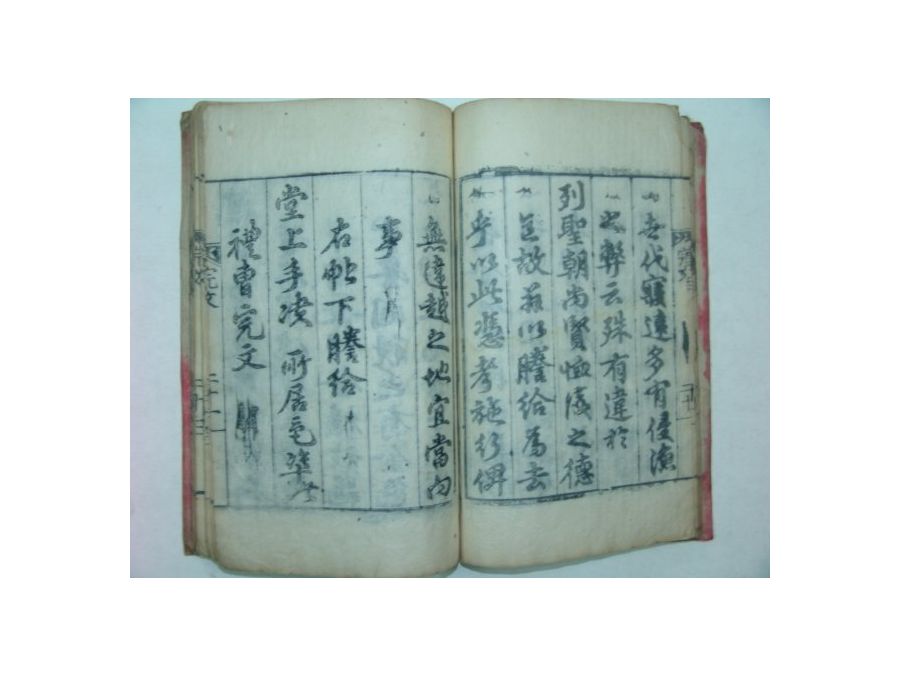 世代寢遠多有侵漁
之弊云殊有違於
列聖朝尚賢恤後之德
故玆以謄給爲去
乎以此憑考施行俾
無違越之地宜當向
事
右帖下謄給
堂上手決 所居邑
禮曹完文
完文